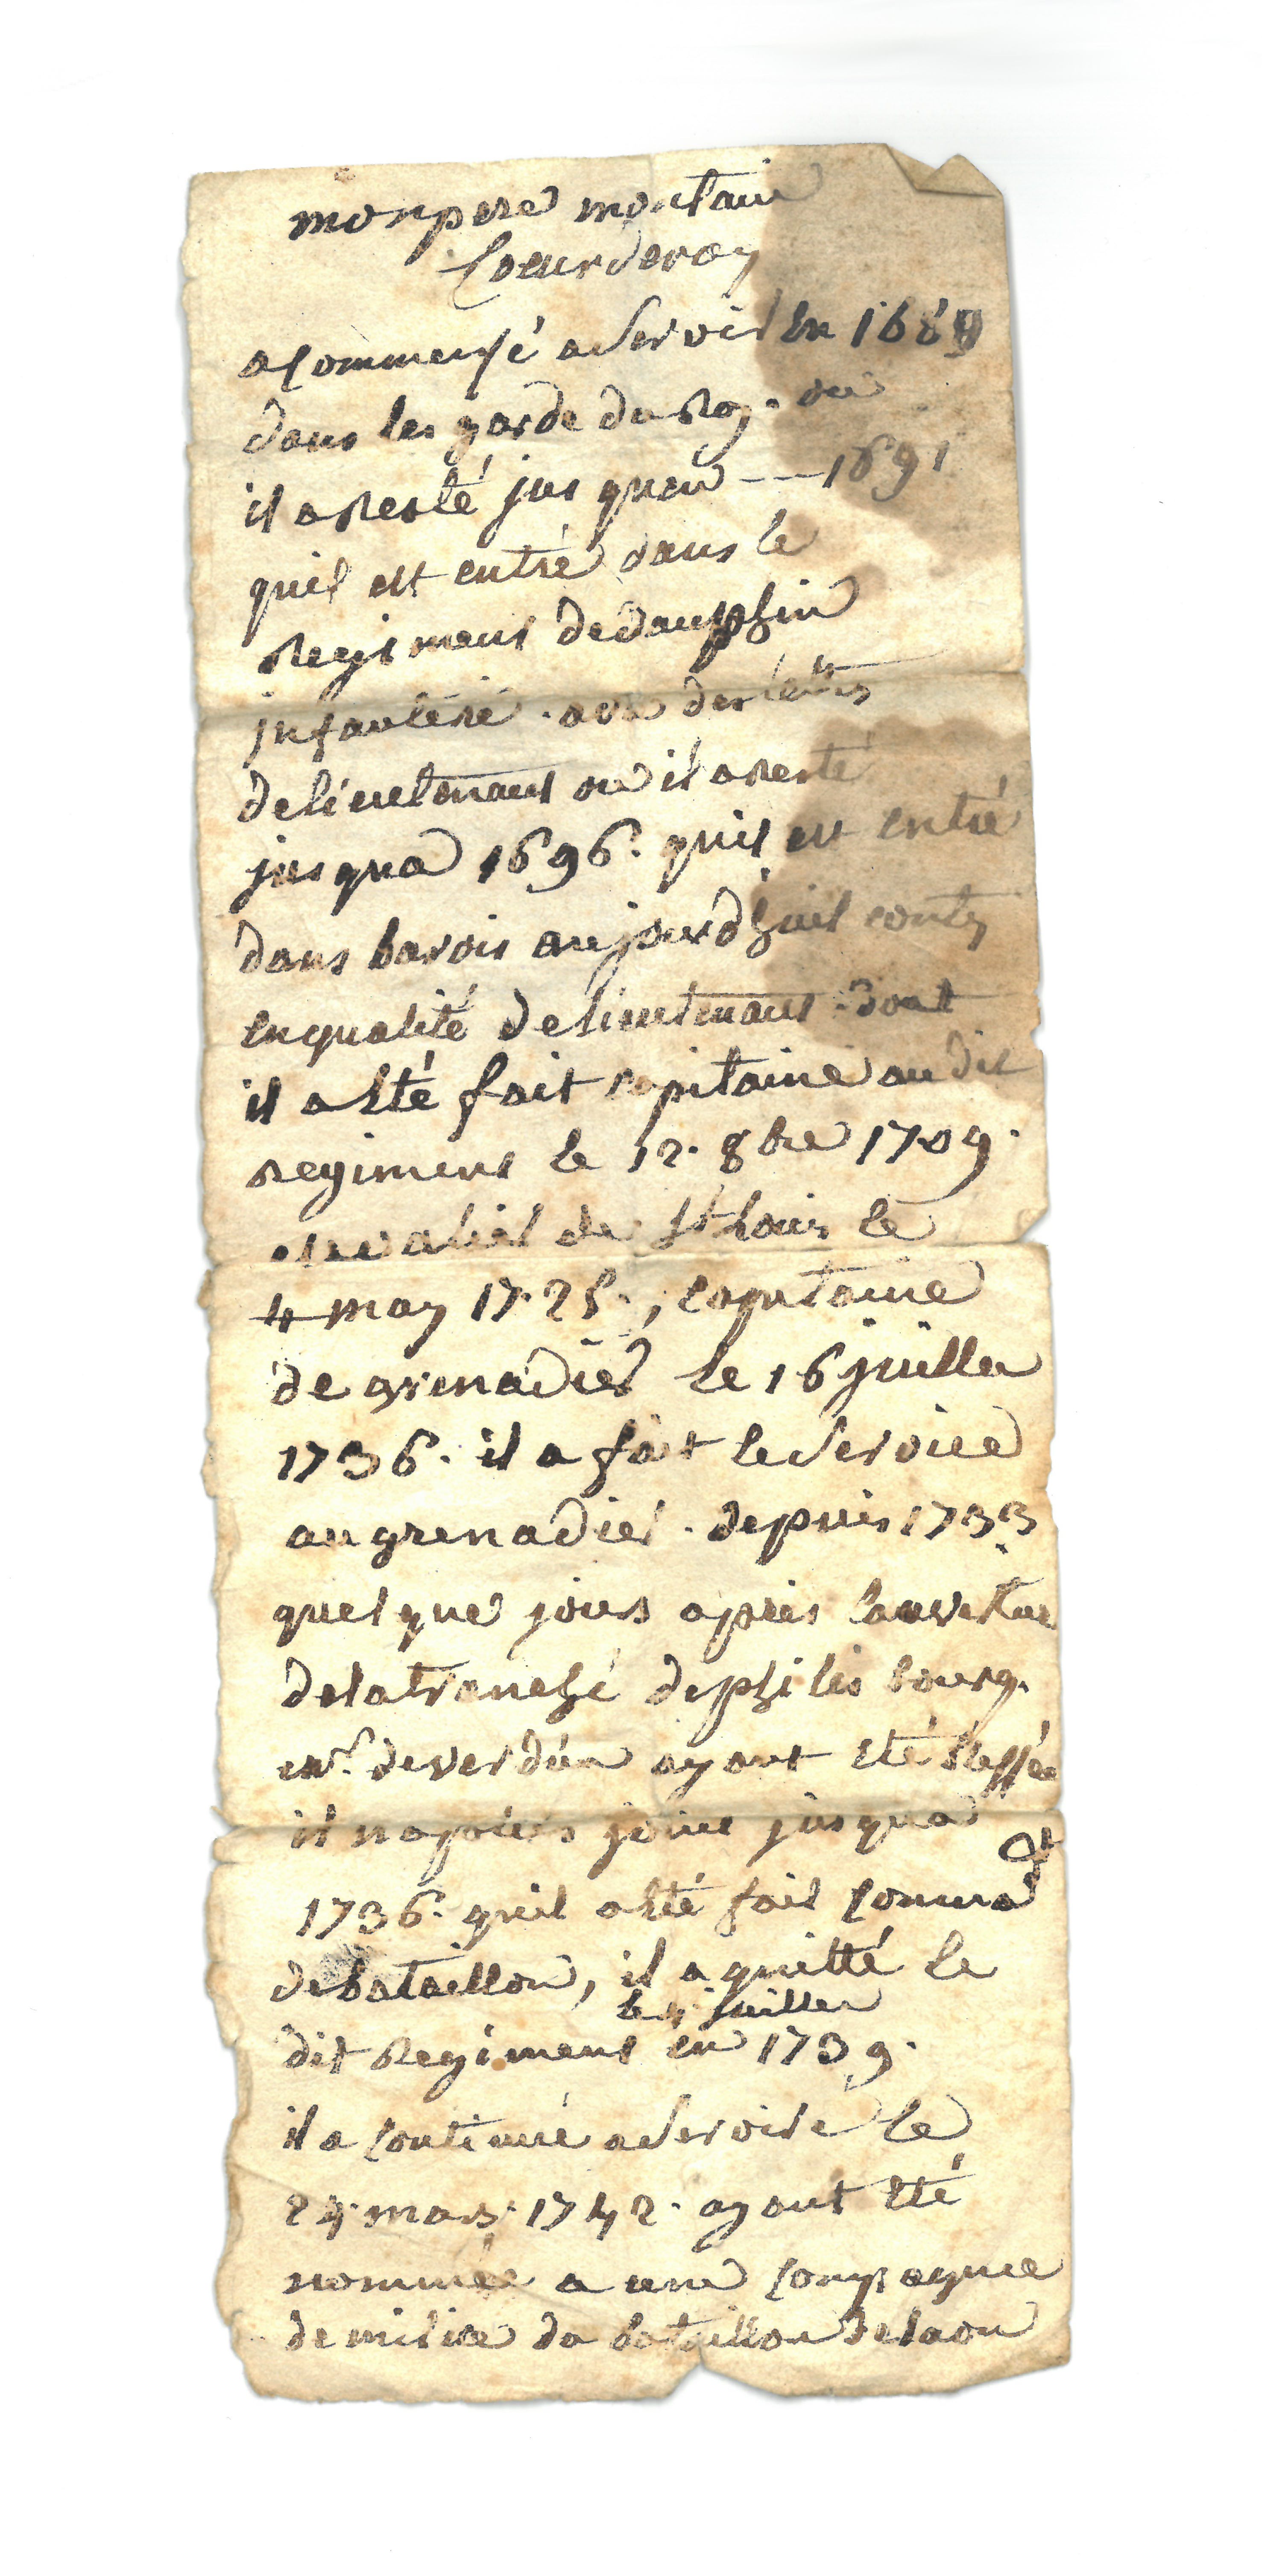 mon pere montain
Coeurderoy
a Commensé a servoir en 1689
dans les garde du Roy. ou
il a resté jus quen --- 1691
quil est entré dans le
Regimens de dauphin
jnfanterie. avec des lettres
de lieutenans ou il a resté
jusqua 1696. quil est entré
dans barois aujourdhuit conty
en qualité de lieutenans. dont
il a eté fait capitaine au dit
regimens le 12. 8bre 1709.
chevalier de St Louis le
4 may 1725., Capitaine
de grenadier le 16 juillet
1736. il a fait le service
au grenadier. depuis 1733
quelque jours apres louvertue
de la tranché de philisbourg.
mr. de verdun ayant eté blessée
il na poins joint jusqua
1736. quil a eté fait Commadt
de bataillon, il a quitté le
le 4 juillet
dit Regimens en 1739.
il a Continué a servoire le
24. mars. 1742. ayant eté
nommée a une Compagnie
de milice du bataillon de laon